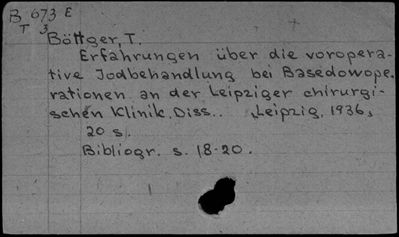 B 673 E
T 3
Böttger, T.
Erfahrungen über die voropera-
tive Jodbehandlung bei Basedowope.
rationen an der Leipziger chirurgi-
schen Klinik. Diss.. Leipzig, 1936,
20 s.
Bibliogr. s. 18-20.